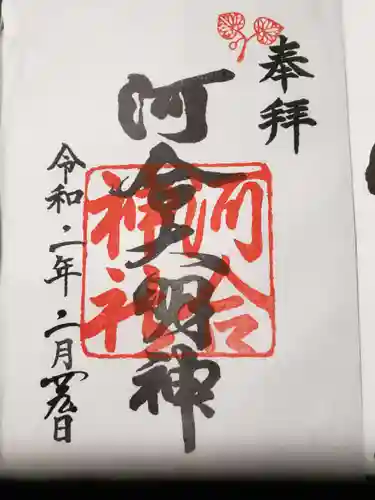 奉拝
河合大明神
河合
神社
令和二年二月廿三日